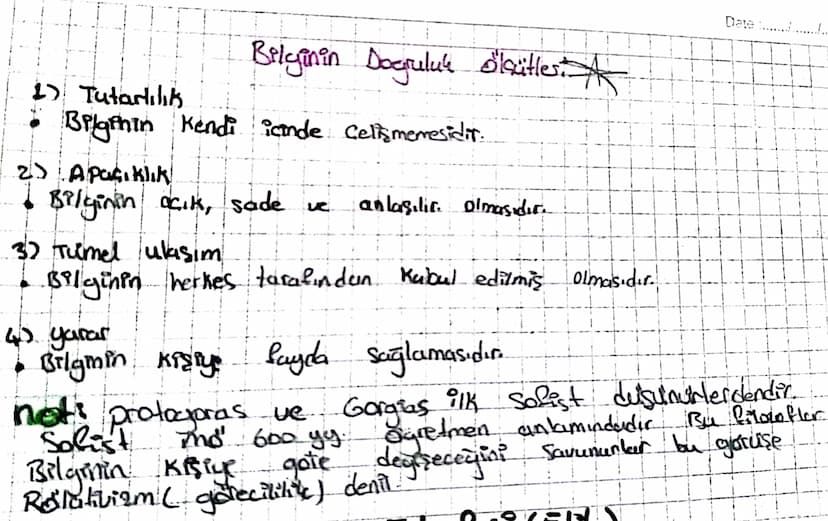 Date:....../....../..
Bilginin Doğruluk Ölçütleri
1) Tutarlılık
• Bilginin kendi içinde çelişmemesidir.
2) Apaçıklık
• Bilginin açık, sade ve anlaşılır olmasıdır.
3) Tümel ulaşım
• Bilginin herkes tarafından kabul edilmiş olmasıdır.
4) yarar
• Bilginin kişiye fayda sağlamasıdır.
not: protagoras ve Gorgias ilk Sofist düşünürlerdendir.
Sofist mö 600 yy öğretmen anlamındadır Bu filozoflar
Bilginin kişiye göre değişeceğini savunurlar bu görüşe
Rölativizm (görecilik) denil.